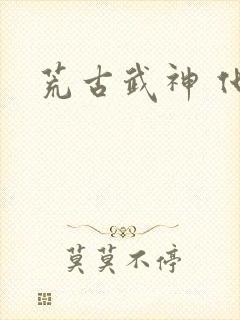 荒古武神
莫莫不停